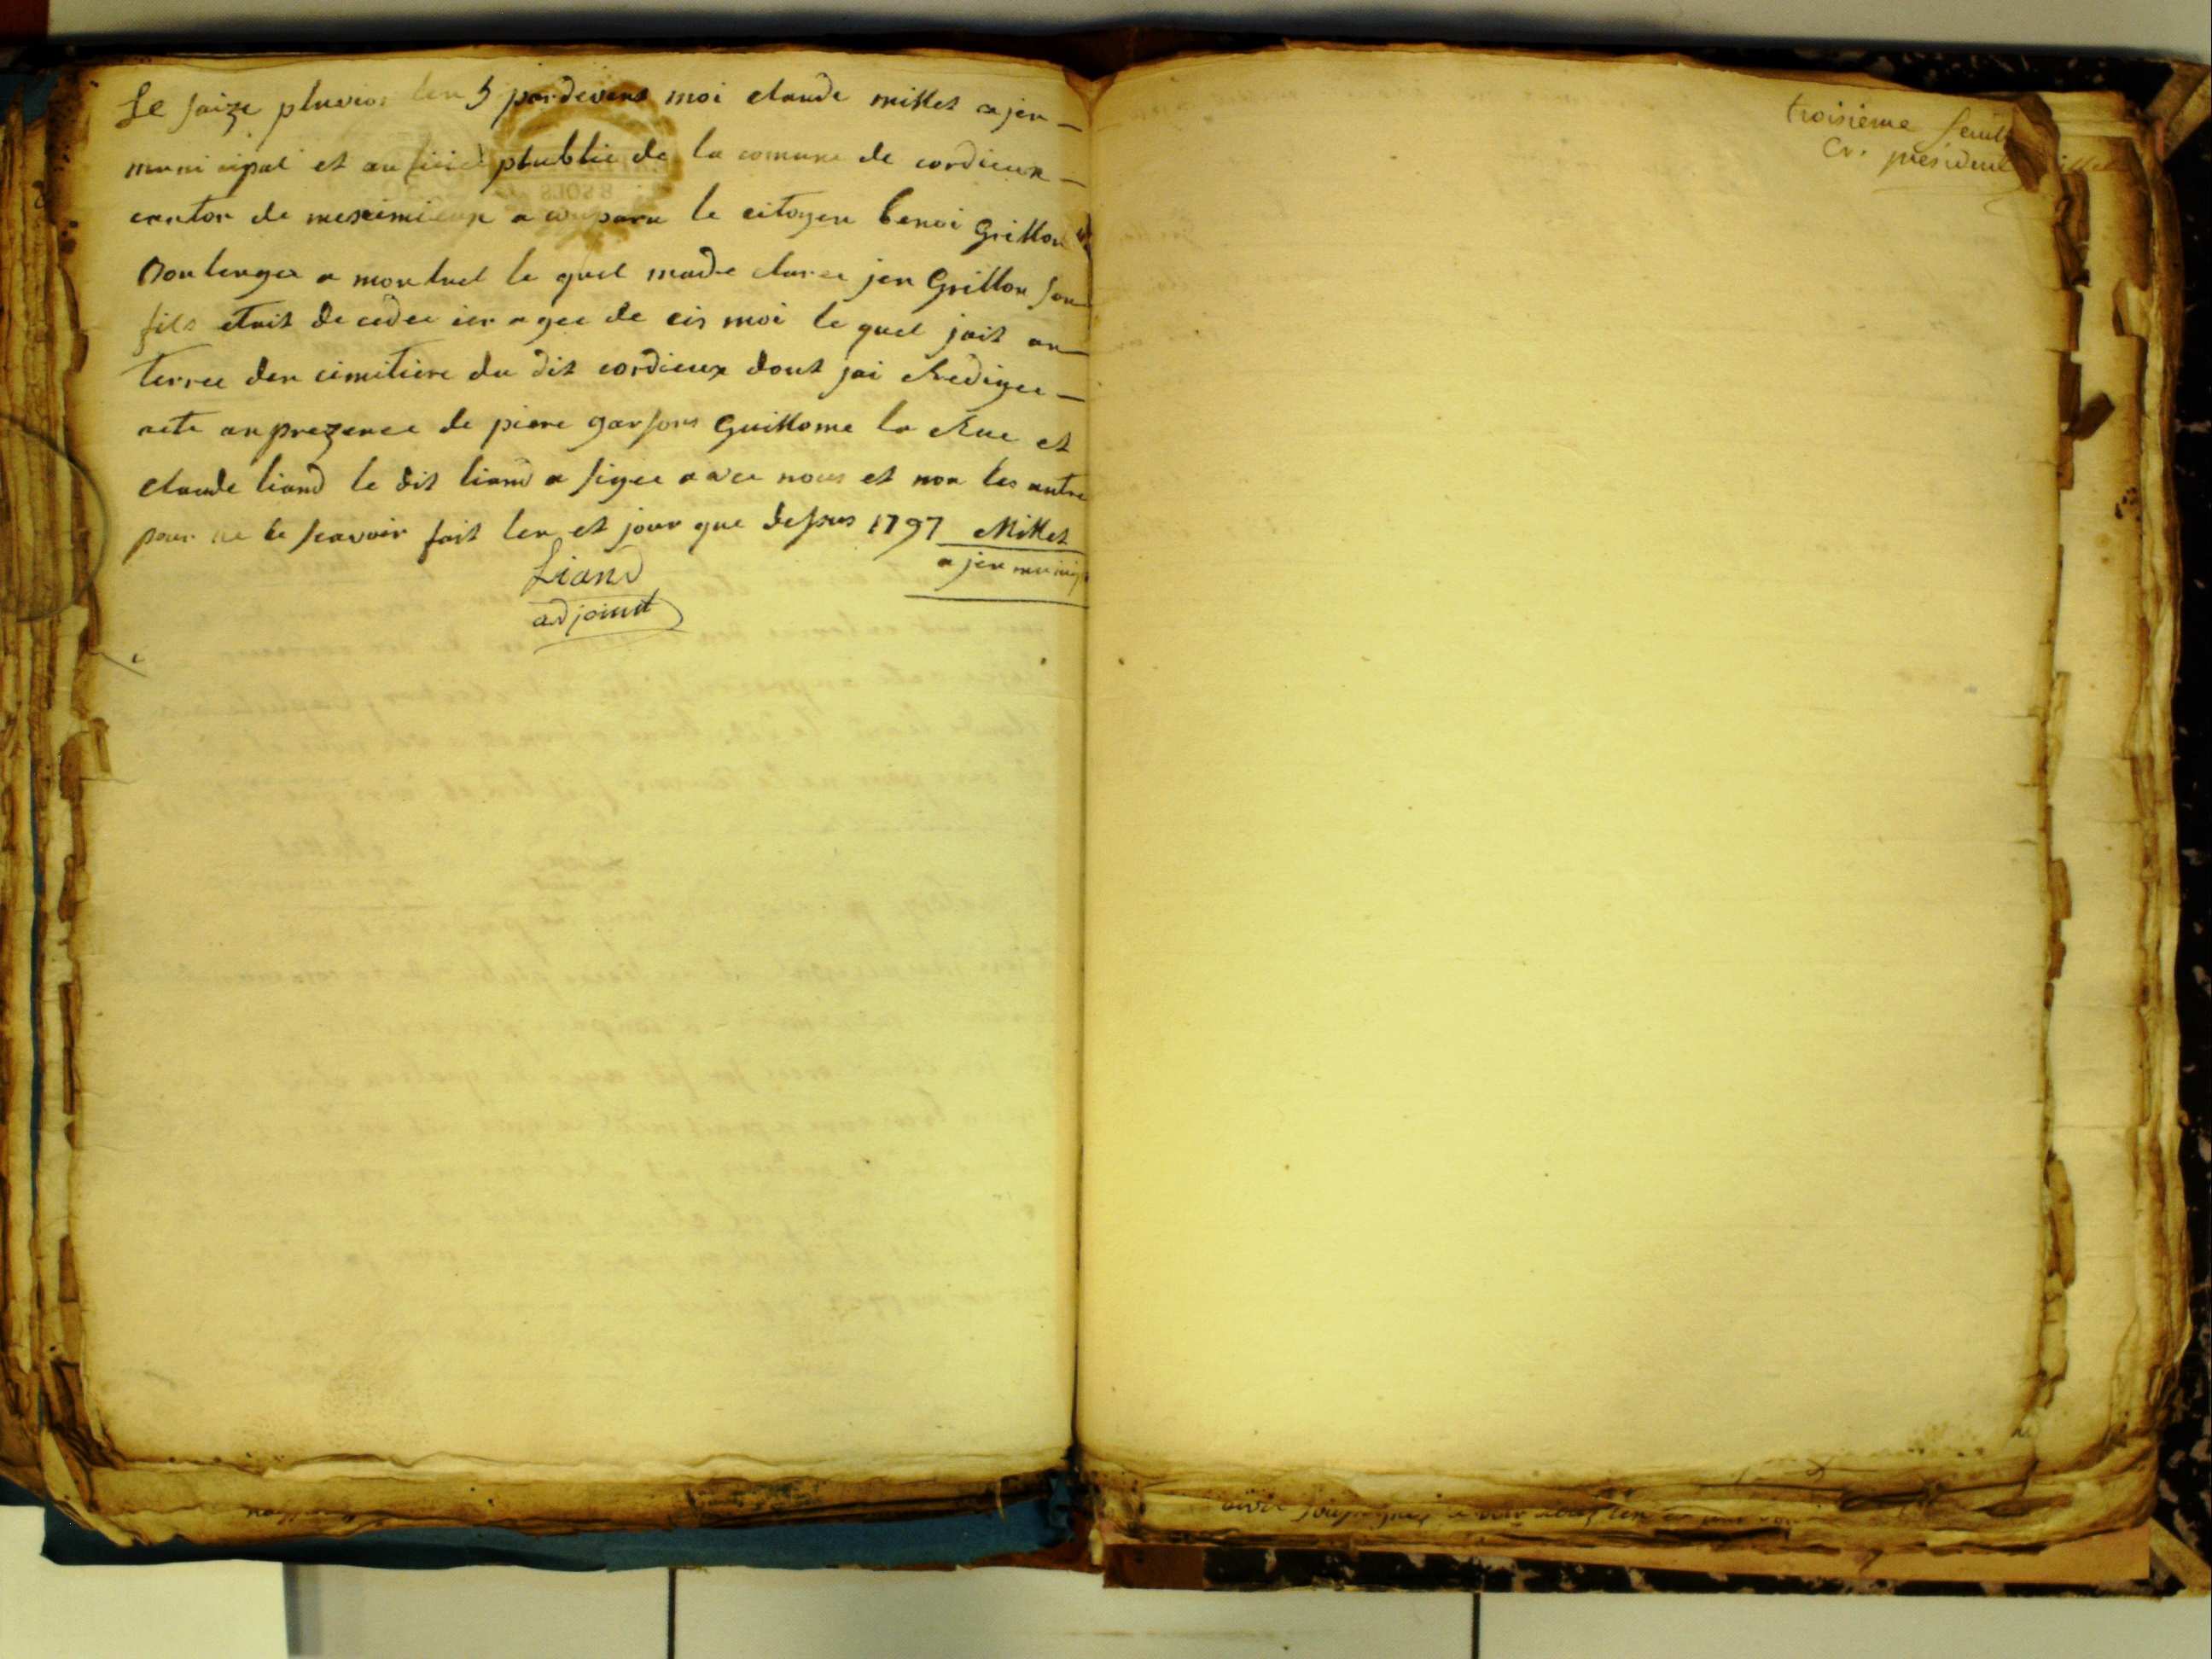 Le saize pluvios len 5 pardevens moi claude millet ajen
municipal et aufisié plublic de la comune de cordieux
canton de meximieux a comparu le citoyen benoi Grillon
Boulenger a montuel le quel made claree jen Grillon son
fils etait decedee ier agee de cis moi le quel jait an
terree den cimitiere du dit cordieux dont jai Redigee
acte anprezence de piere garsons Guillome la Rue et
claude liand le dit liand a signee avec nous et non les autre
pour ne le scavoir fait len et jour que dessus 1797 Millet
Liand
adjoint
ajen munisi
troisième feuill
Cr. président